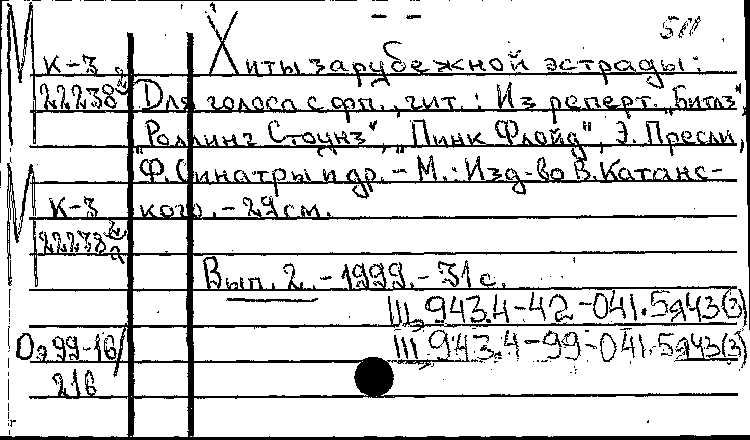 М
К-3 Хиты зарубежной эстрады:
22238 Для голоса с фп., гит.: Из реперт. „Битлз",
„Роллинг Стоунз", „Пинк Флойд", Э. Пресли,
Ф. Синатры и др. - М.: Изд-во В. Катанс-
М К-3 кого. - 29 см.
22238
Вып. 2. - 1999. - 31 с.
Ш 943.4-42-041.5я43(3)
Оя 99-16/ Ш 943.4-99-041.5я43(3)
216